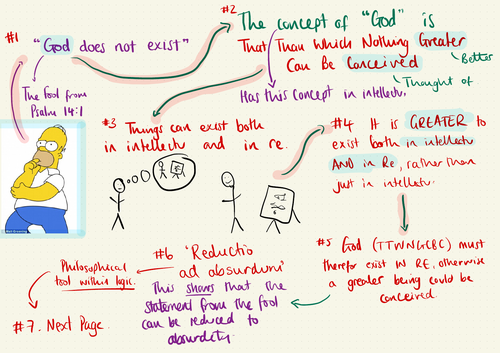 #1
"God does not exist"
The fool from
Psalm 14:1
#2
The concept of "God" is
That Than Which Nothing Greater
Can Be Conceived
Better
Thought of
Has this concept in intellectu.
#3 Things can exist both
in intellectu and in re.
#4 It is GREATER to
exist both in intellectu
AND in Re, rather than
just in intellectu.
#5 God (TTWNGCBC) must
therefor exist IN RE, otherwise
a greater being could be
conceived.
#6 'Reductio
ad absurdum'
This shows that the
statement from the fool
can be reduced to
absurdity.
Philosophical
tool within logic.
#7. Next Page.